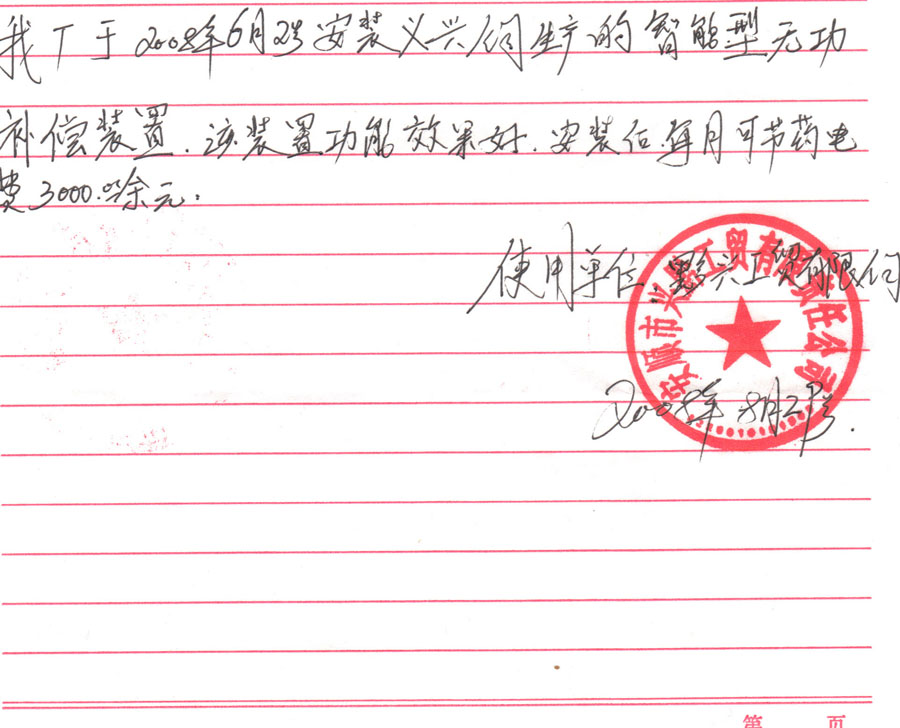 我厂于2008年6月2号安装义兴公司生产的智能型无功
补偿装置.该装置功能效果好.安装后.每月可节药电
费3000.00余元.
使用单位 黔兴工贸有限公司
安顺市兴黔工贸有限责任公司
2008年8月29号.
第 页